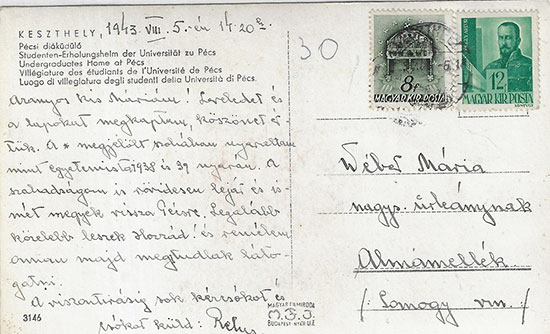 KESZTHELY, 1943. VIII. 5.-én 14.20
Pécsi diáküdülő
Studenten-Erholungsheim der Universität zu Pécs
Undergraduates Home at Pécs
Villégiature des étudiants de l'Université de Pécs
Luogo di villegiatura degli studenti della Università di Pécs.
Aranyos Kis Mariám! Leveledet és
a lapokat megkaptam, köszönet ér-
tük. A * megjelölt szobában nyaraltam
mint egyetemista 1938 és 39 nyarán. A
szabadságom is rövidesen lejár és is-
mét megyek vissza Pécsre. Legalább
közelebb leszek Hozzád! és remélem
onnan majd megtudlak láto-
gatni.
A viszontlátásig sok kézcsókot és
csókot küld:
3146
MAGYAR FILMIRODA
M.F.I.
BUDAPEST
30
8f
MAGYAR KIR. POSTA
12f
MAGYAR KIR. POSTA
Wéber Mária
nagys. úrleánynak
Almámellék
/: Somogy vm. :/